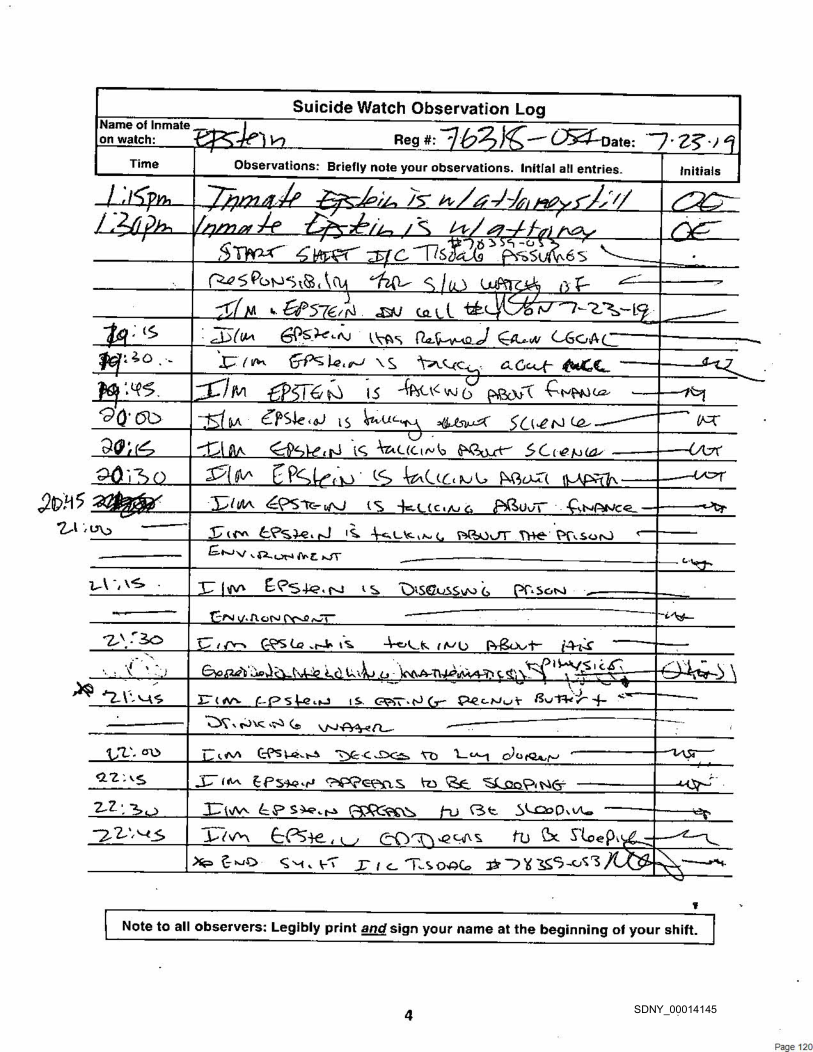 Suicide Watch Observation Log
Name of Inmate on watch: EPSTEIN Reg #: 76318-054 Date: 7-23-19
Time Observations: Briefly note your observations. Initial all entries. Initials
1:15pm Inmate Epstein is w/ attorney still OE
1:30pm Inmate Epstein is w/ attorney OE
#78359-053
START SHIFT I/C Tisdale ASSUMES
RESPONSIBILITY FOR S/W WATCH OF
I/M EPSTEIN IN CELL ON 7-23-19
19:15 I/M EPSTEIN HAS Returned FROM LEGAL
19:30 I/M EPSTEIN IS talking about
19:45 I/M EPSTEIN IS TALKING ABOUT FINANCE
20:00 I/M EPSTEIN IS talking about SCIENCE
20:15 I/M EPSTEIN IS talking About SCIENCE
20:30 I/M EPSTEIN IS talking ABOUT MATH
20:45 I/M EPSTEIN IS talking ABOUT FINANCE
21:00 I/M EPSTEIN IS talking ABOUT THE PRISON
ENVIRONMENT
21:15 I/M EPSTEIN IS DISCUSSING PRISON
ENVIRONMENT
21:30 I/M EPSTEIN IS talking About His
MATHEMATICS PHYSICS
21:45 I/M EPSTEIN IS EATING PeaNut Butter +
DRINKING WATER
22:00 I/M EPSTEIN DECIDES TO Lay down
22:15 I/M EPSTEIN APPEARS to BE SLEEPING
22:30 I/M EPSTEIN APPEARS to BE SLEEPING
22:45 I/M EPSTEIN appears to Be Sleeping
END SHIFT I/C TISDALE #78359-053
Note to all observers: Legibly print and sign your name at the beginning of your shift.
4
SDNY_00014145
Page 120